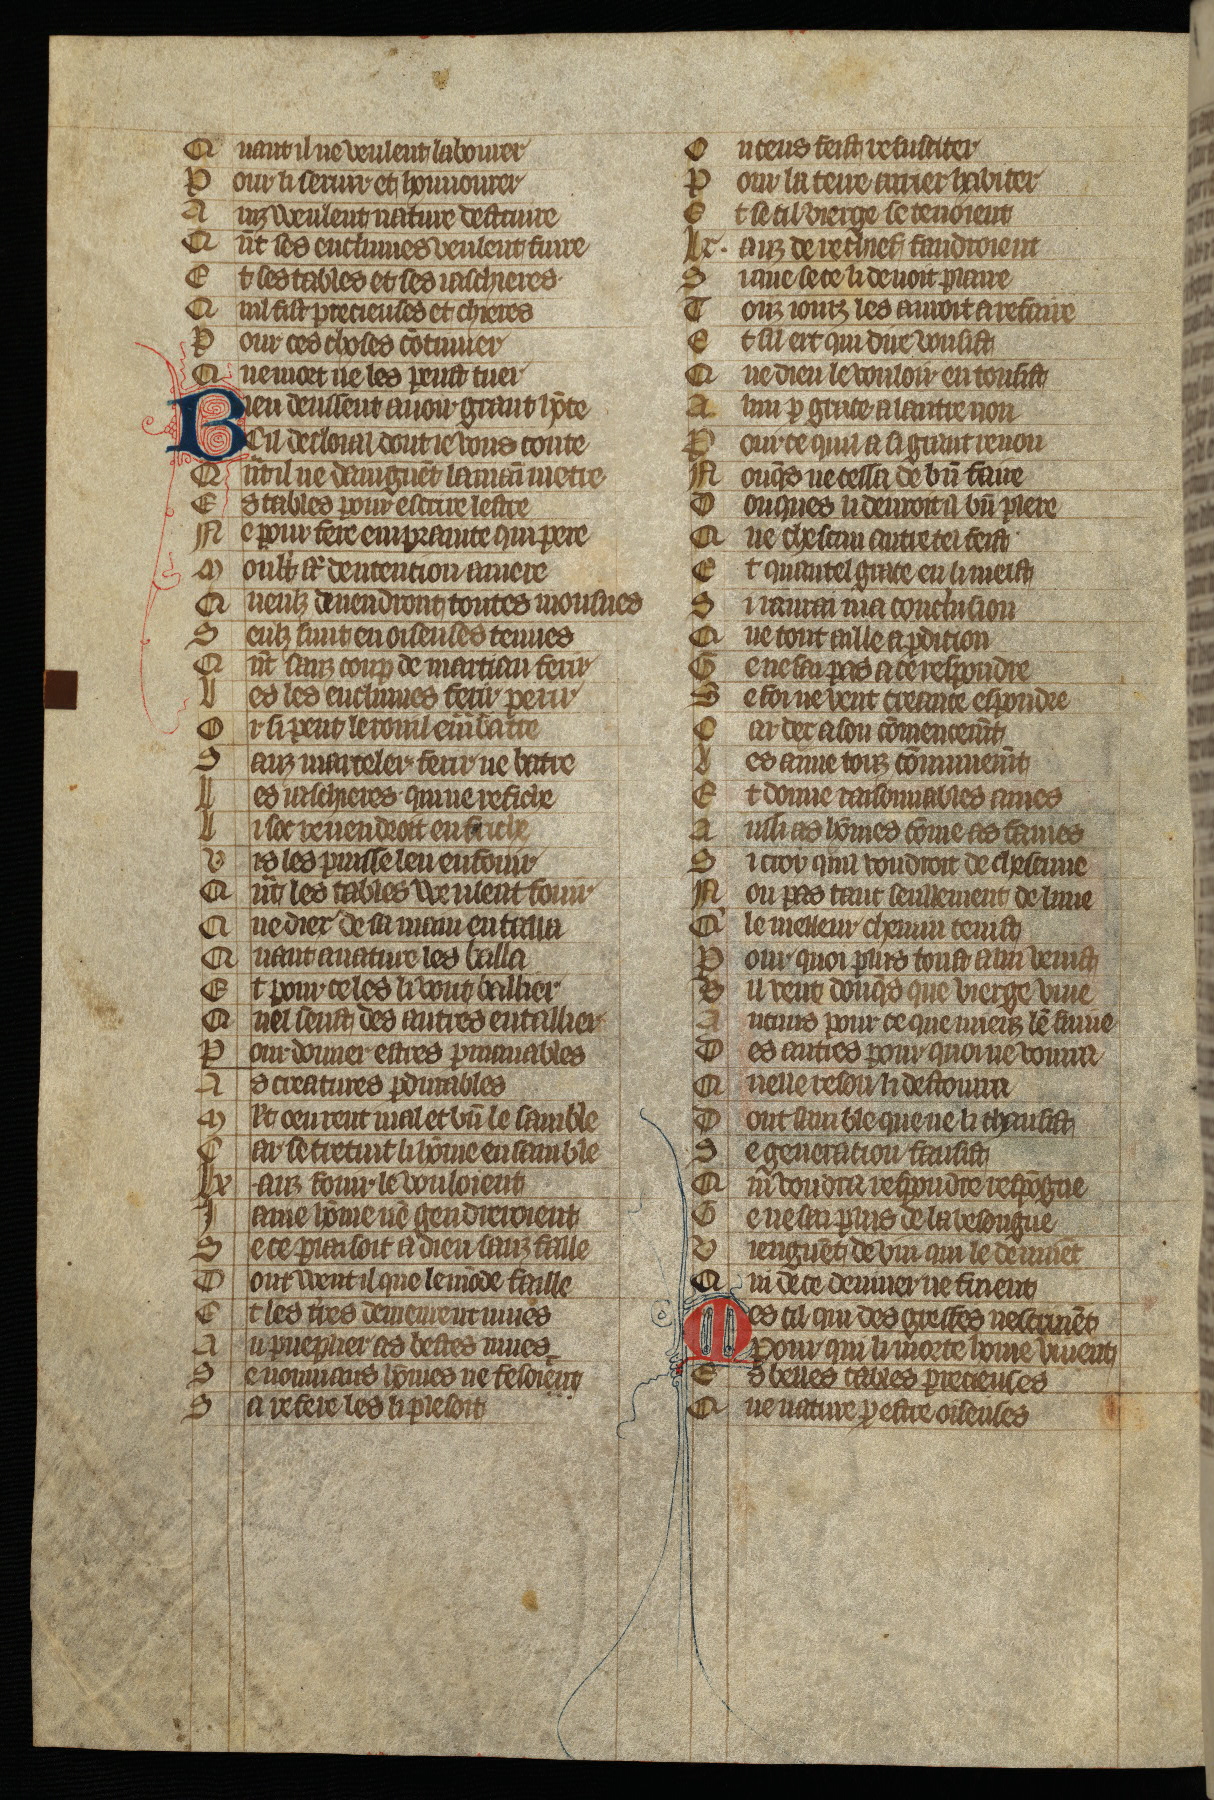 Quant il ne veulent labourer
Pour li seruir et honnourer
Ainz weulent nature destruire
Qñt ses enclumes veulent fuire
Et ses tables et ses iaschieres
Quil fist precieuses et chieres
Pour ces choses cōtinuer
Que mort ne les peust tuer
Bien deussent auoir grant hōte
Cil desloial dont ie vous conte
Qñt il ne daingnēt la main metre
Es tables pour escrire lestre
Ne pour fere empraınte qui pere
Moult st̄ dentention amere
Queulz deuendront toutes moussues
Seulz sunt en oiseuses tenues
Qñt sanz coup de martiau ferir
Les les enclumes ferir perir
Or si peut le rouil embatre
Sanz marteler ferir ne batre
Les iaschieres qui ne refiche
Li soc reuendroit en friche
Vis les puisse len enfouir
Qñt les tables weulent fouir
Que diex de sa main entailla
Quant a nature les bailla
Et pour ce les li vout baillier
Quel seust des autres entaillier
Pour donner estres pmanables
As creatures pdurables
Mlt oeurent mal et bn̄ le samble
Car se trestuit li hōme ensamble
.lx. anz fouir le vouloient
Iame hōme nē gendreroient
Se ce plaisoit a dieu sanz faille
Dont weut il que le mōde faille
Et les tires demeurent nues
A pueplier as bestes mues
Se nouuiaus hōmes ne fesoient
Sa refere les li plesoit
Ou ceus feist resusciter
Pour la terre arrier habiter
Et se cil vierge se tenoient
lx. anz de rechief faudroient
Si que se ce li deuoit plaire
Touz iourz les auroit a refaire
Et sil ert qui dire vousist
Que dieu le vouloir en tousist
A lun p̄ grace a lautre non
Pour ce quil a si grant renon
Nonq̄s ne cessa de bn̄ faire
Donques li deuroit il bn̄ plere
Que chescun autretel feist
Et quautel grace en li meist
Si raurai ma conclusion
Que tout aille a pdition
Ge ne sai pas a ce respondre
Se foi ne veut creance espondre
Car dex a son cōmencemt̄
Les aime touz cōmunemt̄
Et donne raisonnables ames
Aussi as hōmes cōme as fames
Si croy quil voudroit de chescune
Non pas tant seullement de lune
Q le melleur chemin tenist
Pour quoi plus tost a lui venist
Sil veut donq̄s que vierge viue
Aucuns pour ce que mieux lē siuue
Des autres pour quoi ne voudra
Quelle reson li destourra
Dont samble que ne li chausist
Se generation fausist
Qui voudra respondre respōgne
Ge ne sai plus de la besongne
Viengnēt deuin qui le deuinēt
Qui de ce deuiner ne finent
Mes cil qui des greffes nescriuēt
Pour qui li morte home viuent
Es belles tables precieuses
Que nature p̄ estre oiseuses